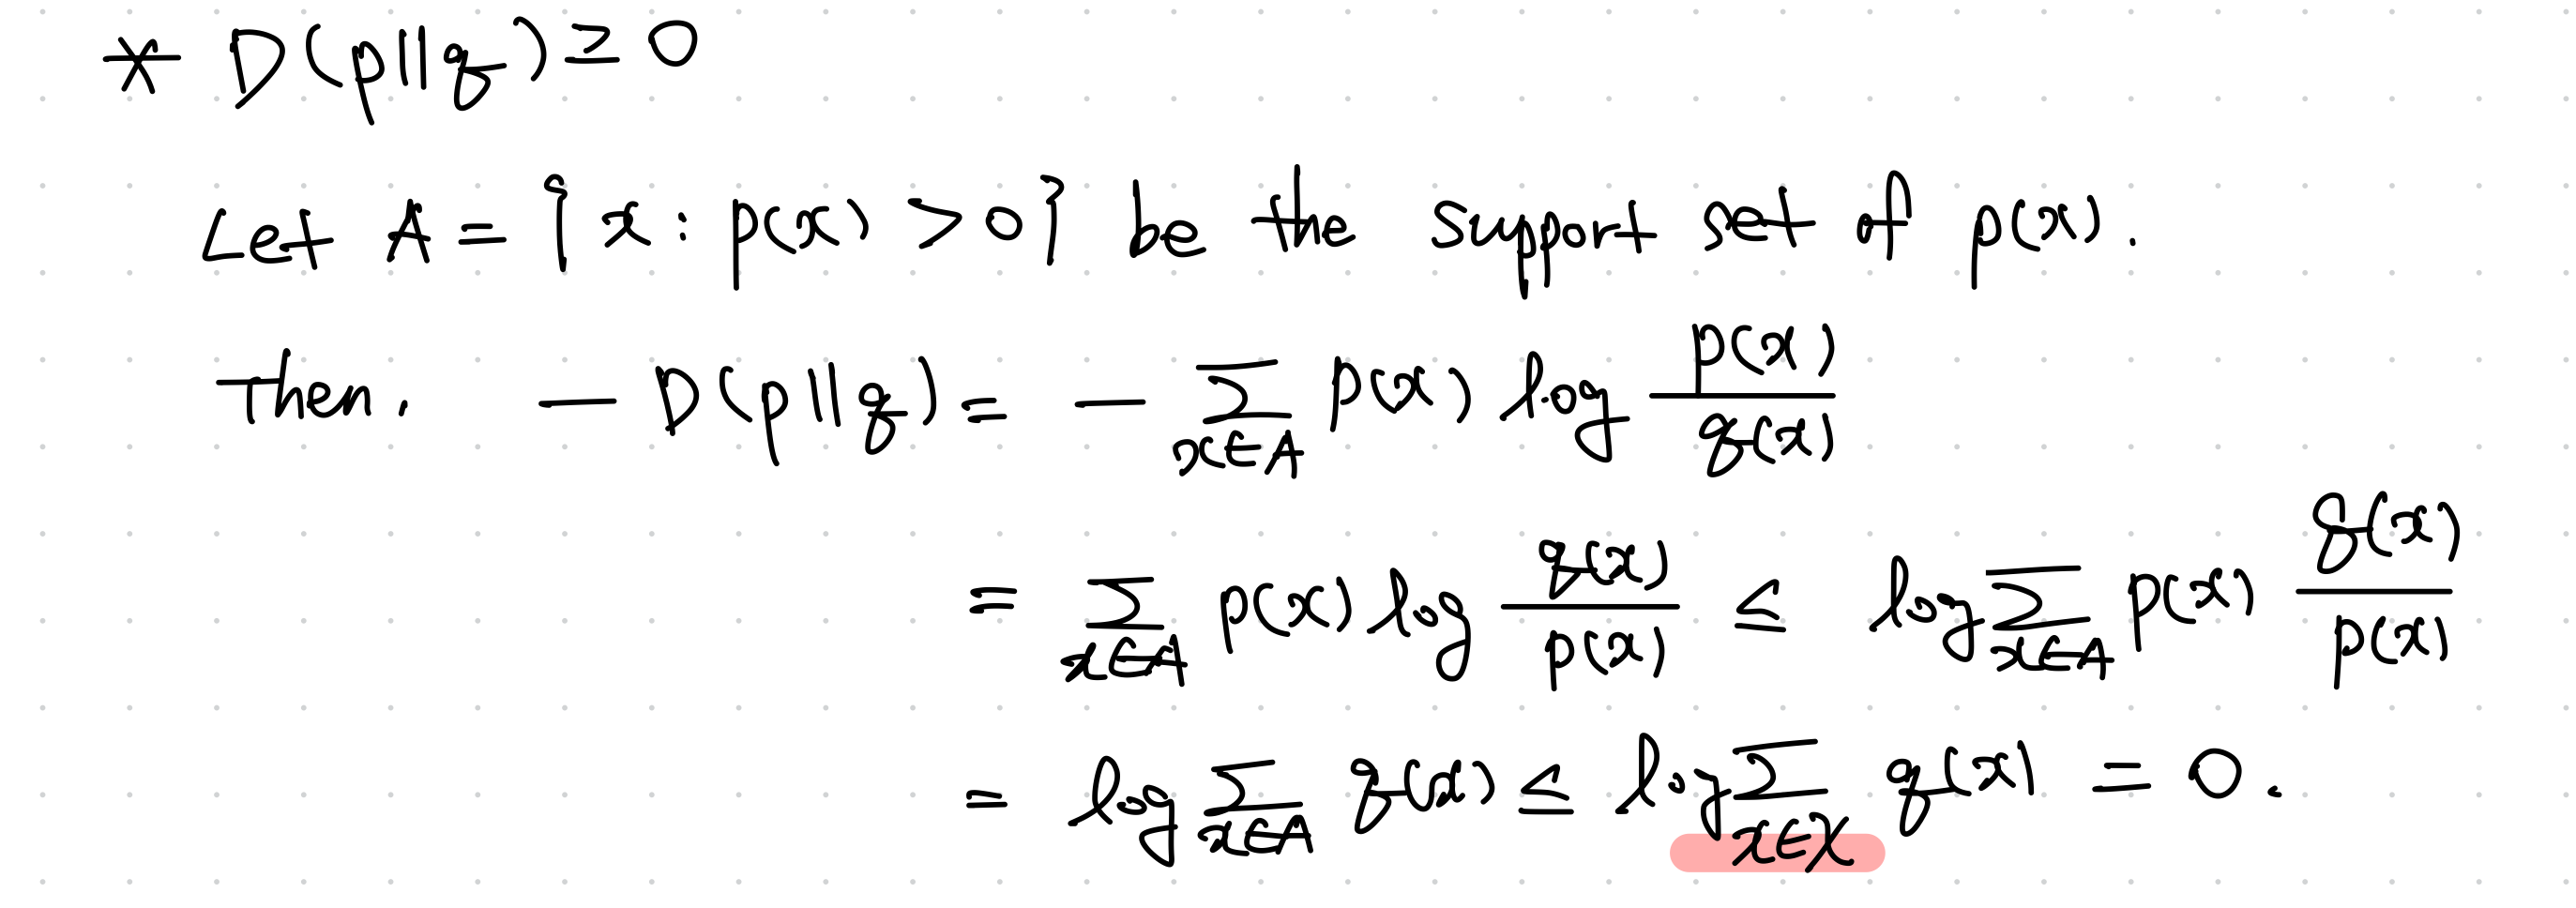 * D(p||q) ≥ 0
Let A = {x : p(x) > 0} be the support set of p(x).
Then, − D(p||q) = − ∑_{x∈A} p(x) log p(x)/q(x)
= ∑_{x∈A} p(x) log q(x)/p(x) ≤ log ∑_{x∈A} p(x) q(x)/p(x)
= log ∑_{x∈A} q(x) ≤ log ∑_{x∈X} q(x) = 0.